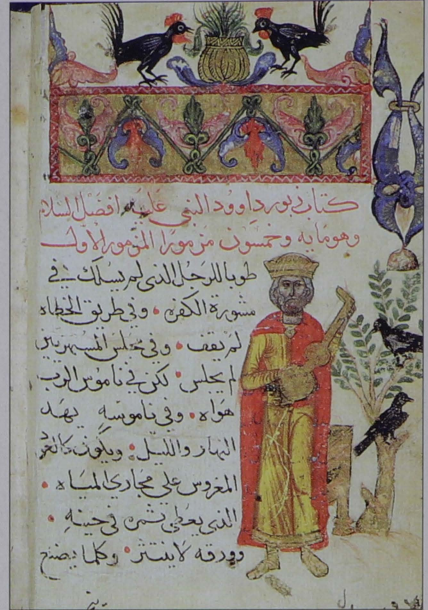 كتاب زبور داوود النبي عليه افضل السلام
وهو مايه وخمسون مزمورا المزمور الاول
طوبا للرجل الذي لم يسلك في
مشورة الكفره وفي طريق الخطاه
لم يقف وفي مجلس المستهزيين
لم يجلس لكن في ناموس الرب
هواه وفي ناموسه يهد
النهار والليل ويكون كالعود
المغروس على مجاري المياه
الذي يعطي ثمره في حينه
وورقه لا ينتثر وكلما يصنع